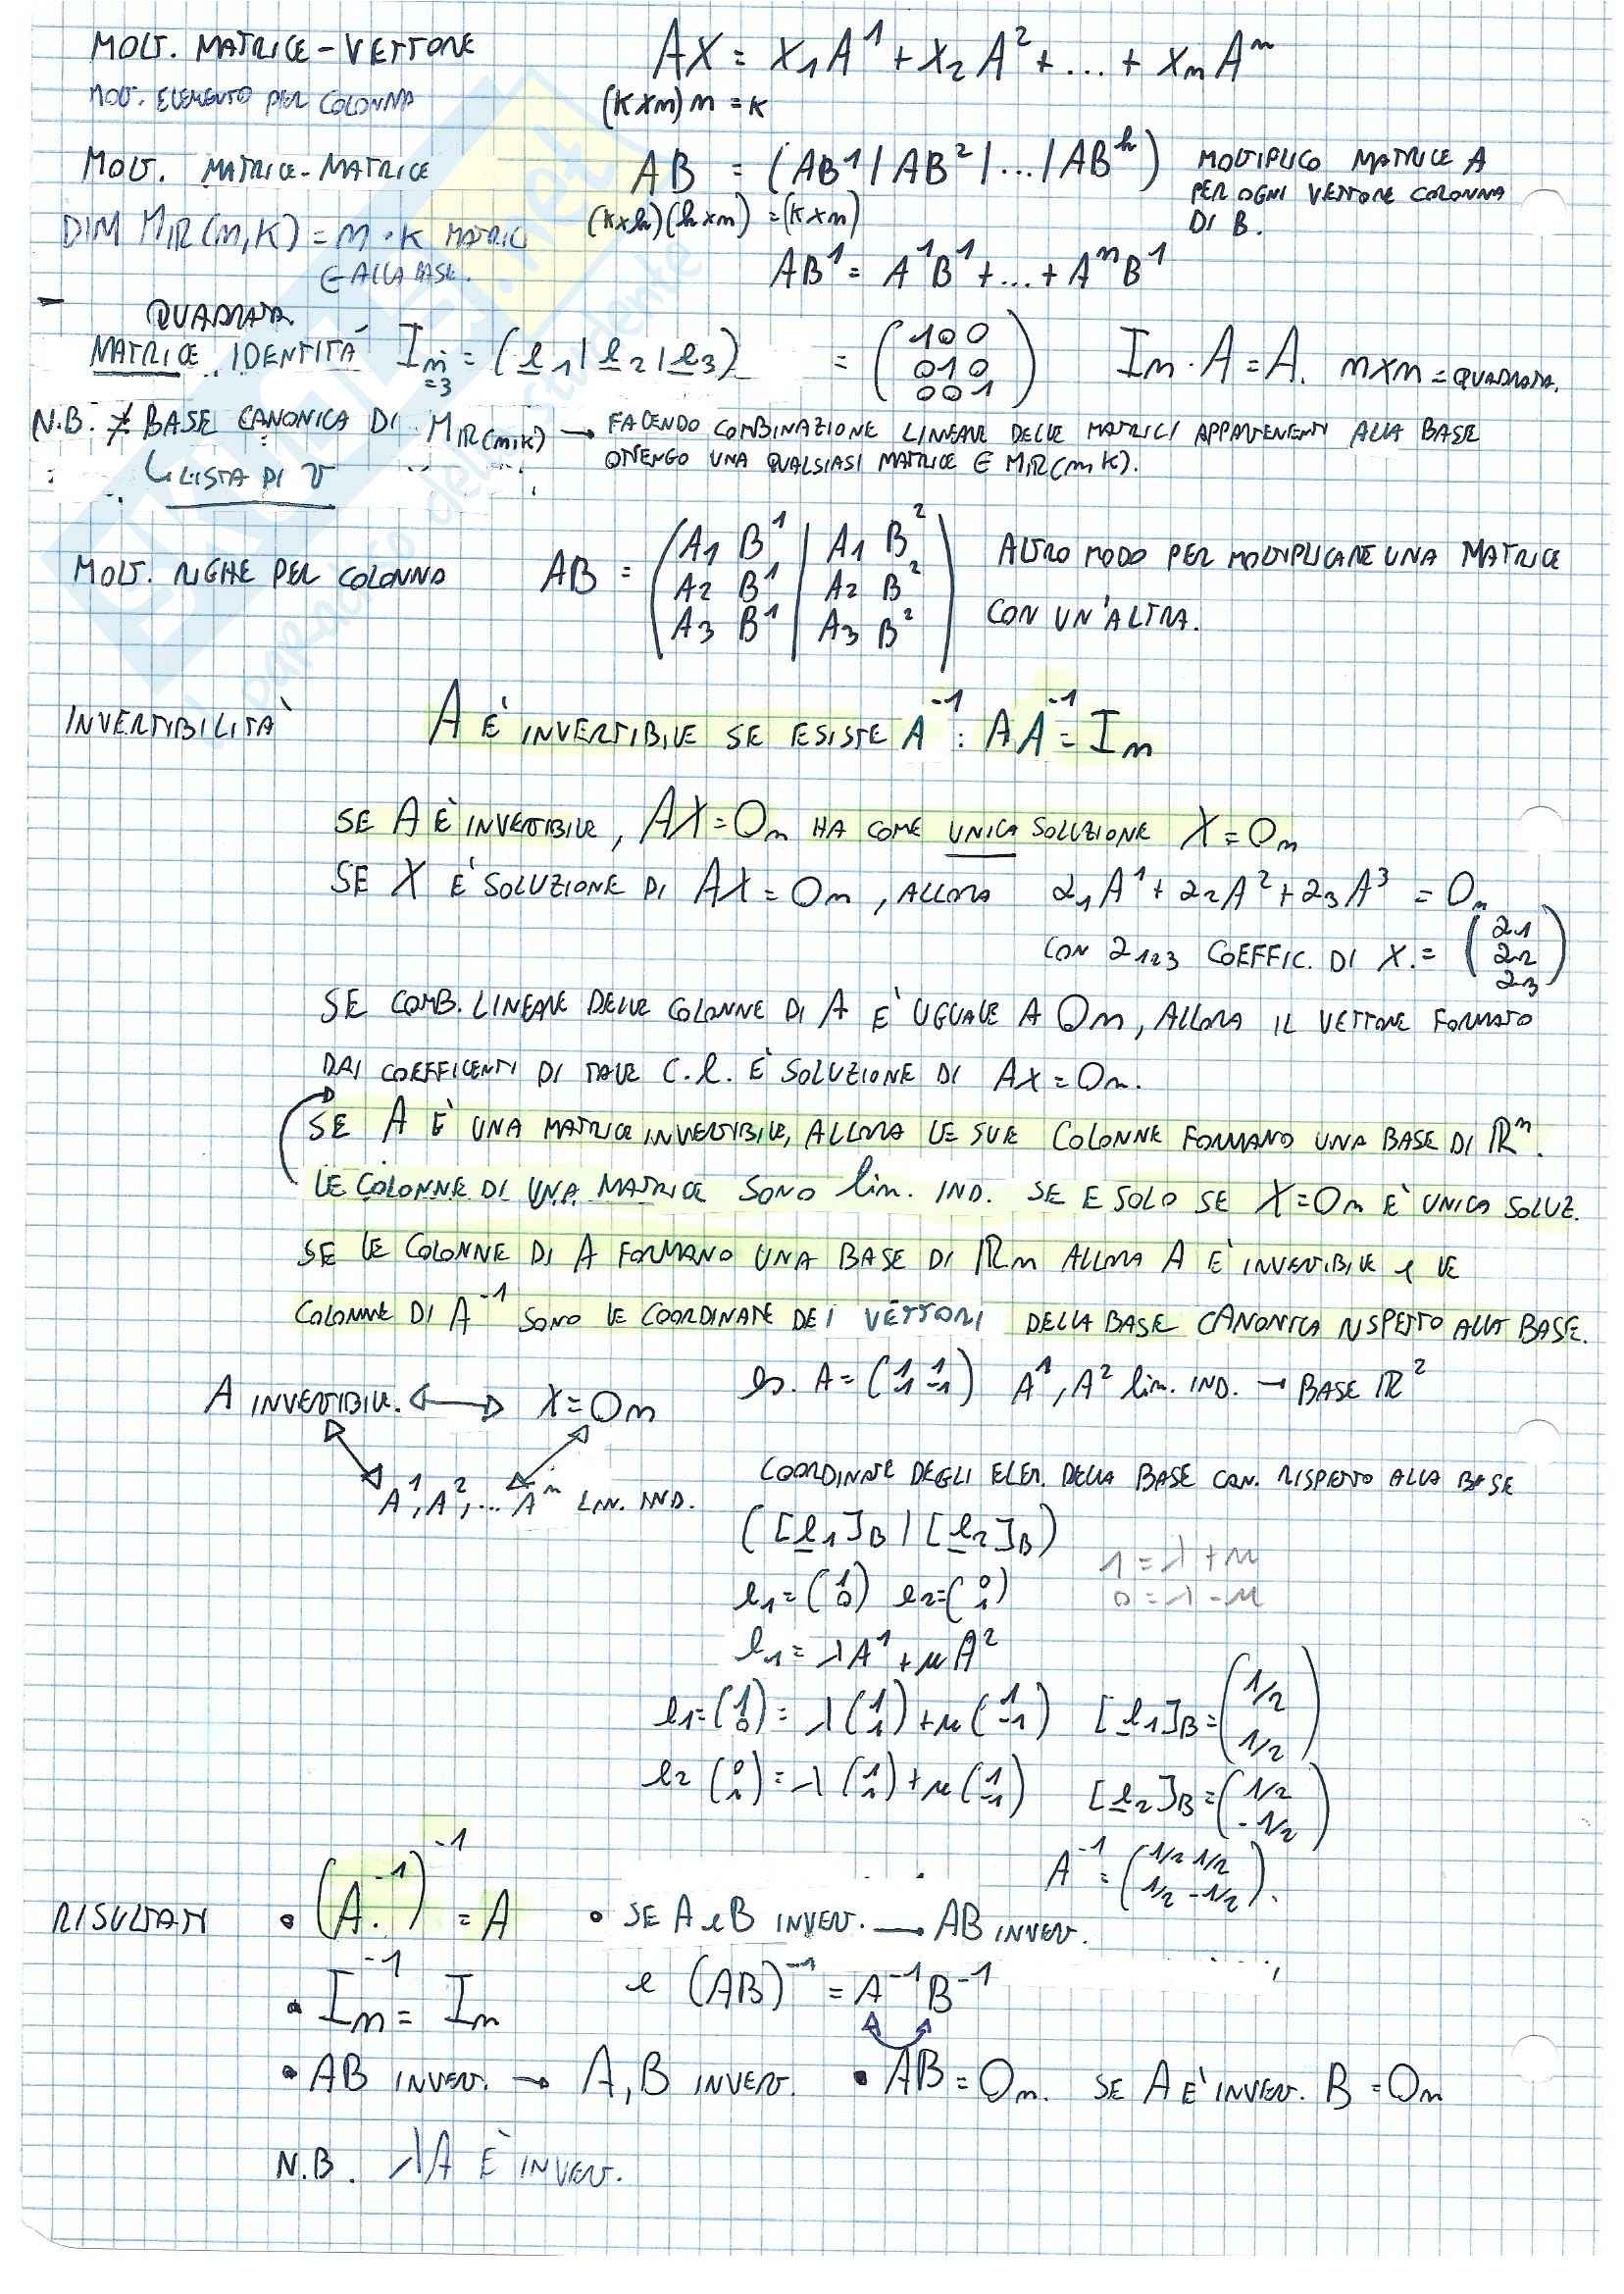 MOLT. MATRICE - VETTORE AX = x1A^1 + x2A^2 + ... + xnA^n
MOLT. ELEMENTO PER COLONNA (k×n) n = k
MOLT. MATRICE-MATRICE AB = (AB^1 | AB^2 | ... | AB^h) MOLTIPLICO MATRICE A
PER OGNI VETTORE COLONNA
DI B.
DIM MIR(m,K) = m·K MATRICI (k×h)(h×n) = (k×n)
∈ ALLA BASE.
AB^1 = A^1B^1 + ... + A^nB^1
QUADRATA
MATRICE IDENTITÀ In=3 = (e1 | e2 | e3) = (1 0 0
0 1 0
0 0 1) In · A = A. n×n = QUADRATA.
N.B. ≠ BASE CANONICA DI MIR(m,K) → FACENDO COMBINAZIONE LINEARE DELLE MATRICI APPARTENENTI ALLA BASE
OTTENGO UNA QUALSIASI MATRICE ∈ MIR(m,K).
↳ LISTA DI V
MOLT. RIGHE PER COLONNA AB = (A1 B^1 | A1 B^2
A2 B^1 | A2 B^2
A3 B^1 | A3 B^2) ALTRO MODO PER MOLTIPLICARE UNA MATRICE
CON UN'ALTRA.
INVERTIBILITÀ A È INVERTIBILE SE ESISTE A^-1 : AA^-1 = In
SE A È INVERTIBILE, AX = On HA COME UNICA SOLUZIONE X = On
SE X È SOLUZIONE DI AX = On, ALLORA 21A^1 + 22A^2 + 23A^3 = On
CON 2123 COEFFIC. DI X. = (21
22
23)
SE COMB. LINEARE DELLE COLONNE DI A È UGUALE A On, ALLORA IL VETTORE FORMATO
DAI COEFFICENTI DI TALE C.L. È SOLUZIONE DI AX = On.
SE A È UNA MATRICE INVERTIBILE, ALLORA LE SUE COLONNE FORMANO UNA BASE DI IR^n.
LE COLONNE DI UNA MATRICE SONO lin. IND. SE E SOLO SE X = On È UNICA SOLUZ.
SE LE COLONNE DI A FORMANO UNA BASE DI IRn ALLORA A È INVERTIBILE e LE
COLONNE DI A^-1 SONO LE COORDINATE DEI VETTORI DELLA BASE CANONICA RISPETTO ALLA BASE.
es. A = (1 1
1 -1) A^1, A^2 lin. IND. → BASE IR^2
A INVERTIBILE. ↔ X = On
A^1, A^2, ... A^n LIN. IND.
COORDINATE DEGLI ELEM. DELLA BASE CAN. RISPETTO ALLA BASE
([e1]B | [e2]B)
1 = λ + μ
0 = λ - μ
e1 = (1
0) e2 = (0
1)
e1 = λA^1 + μA^2
e1 = (1
0) = λ(1
1) + μ(1
-1) [e1]B = (1/2
1/2)
e2 (0
1) = λ(1
1) + μ(1
-1) [e2]B = (1/2
-1/2)
A^-1 = (1/2 1/2
1/2 -1/2).
RISULTATI • (A^-1)^-1 = A • SE A e B INVERT. → AB INVERT.
e (AB)^-1 = A^-1 B^-1
• In^-1 = In
• AB INVERT. → A, B INVERT. • AB = On. SE A È INVERT. B = On
N.B. λA È INVERT.